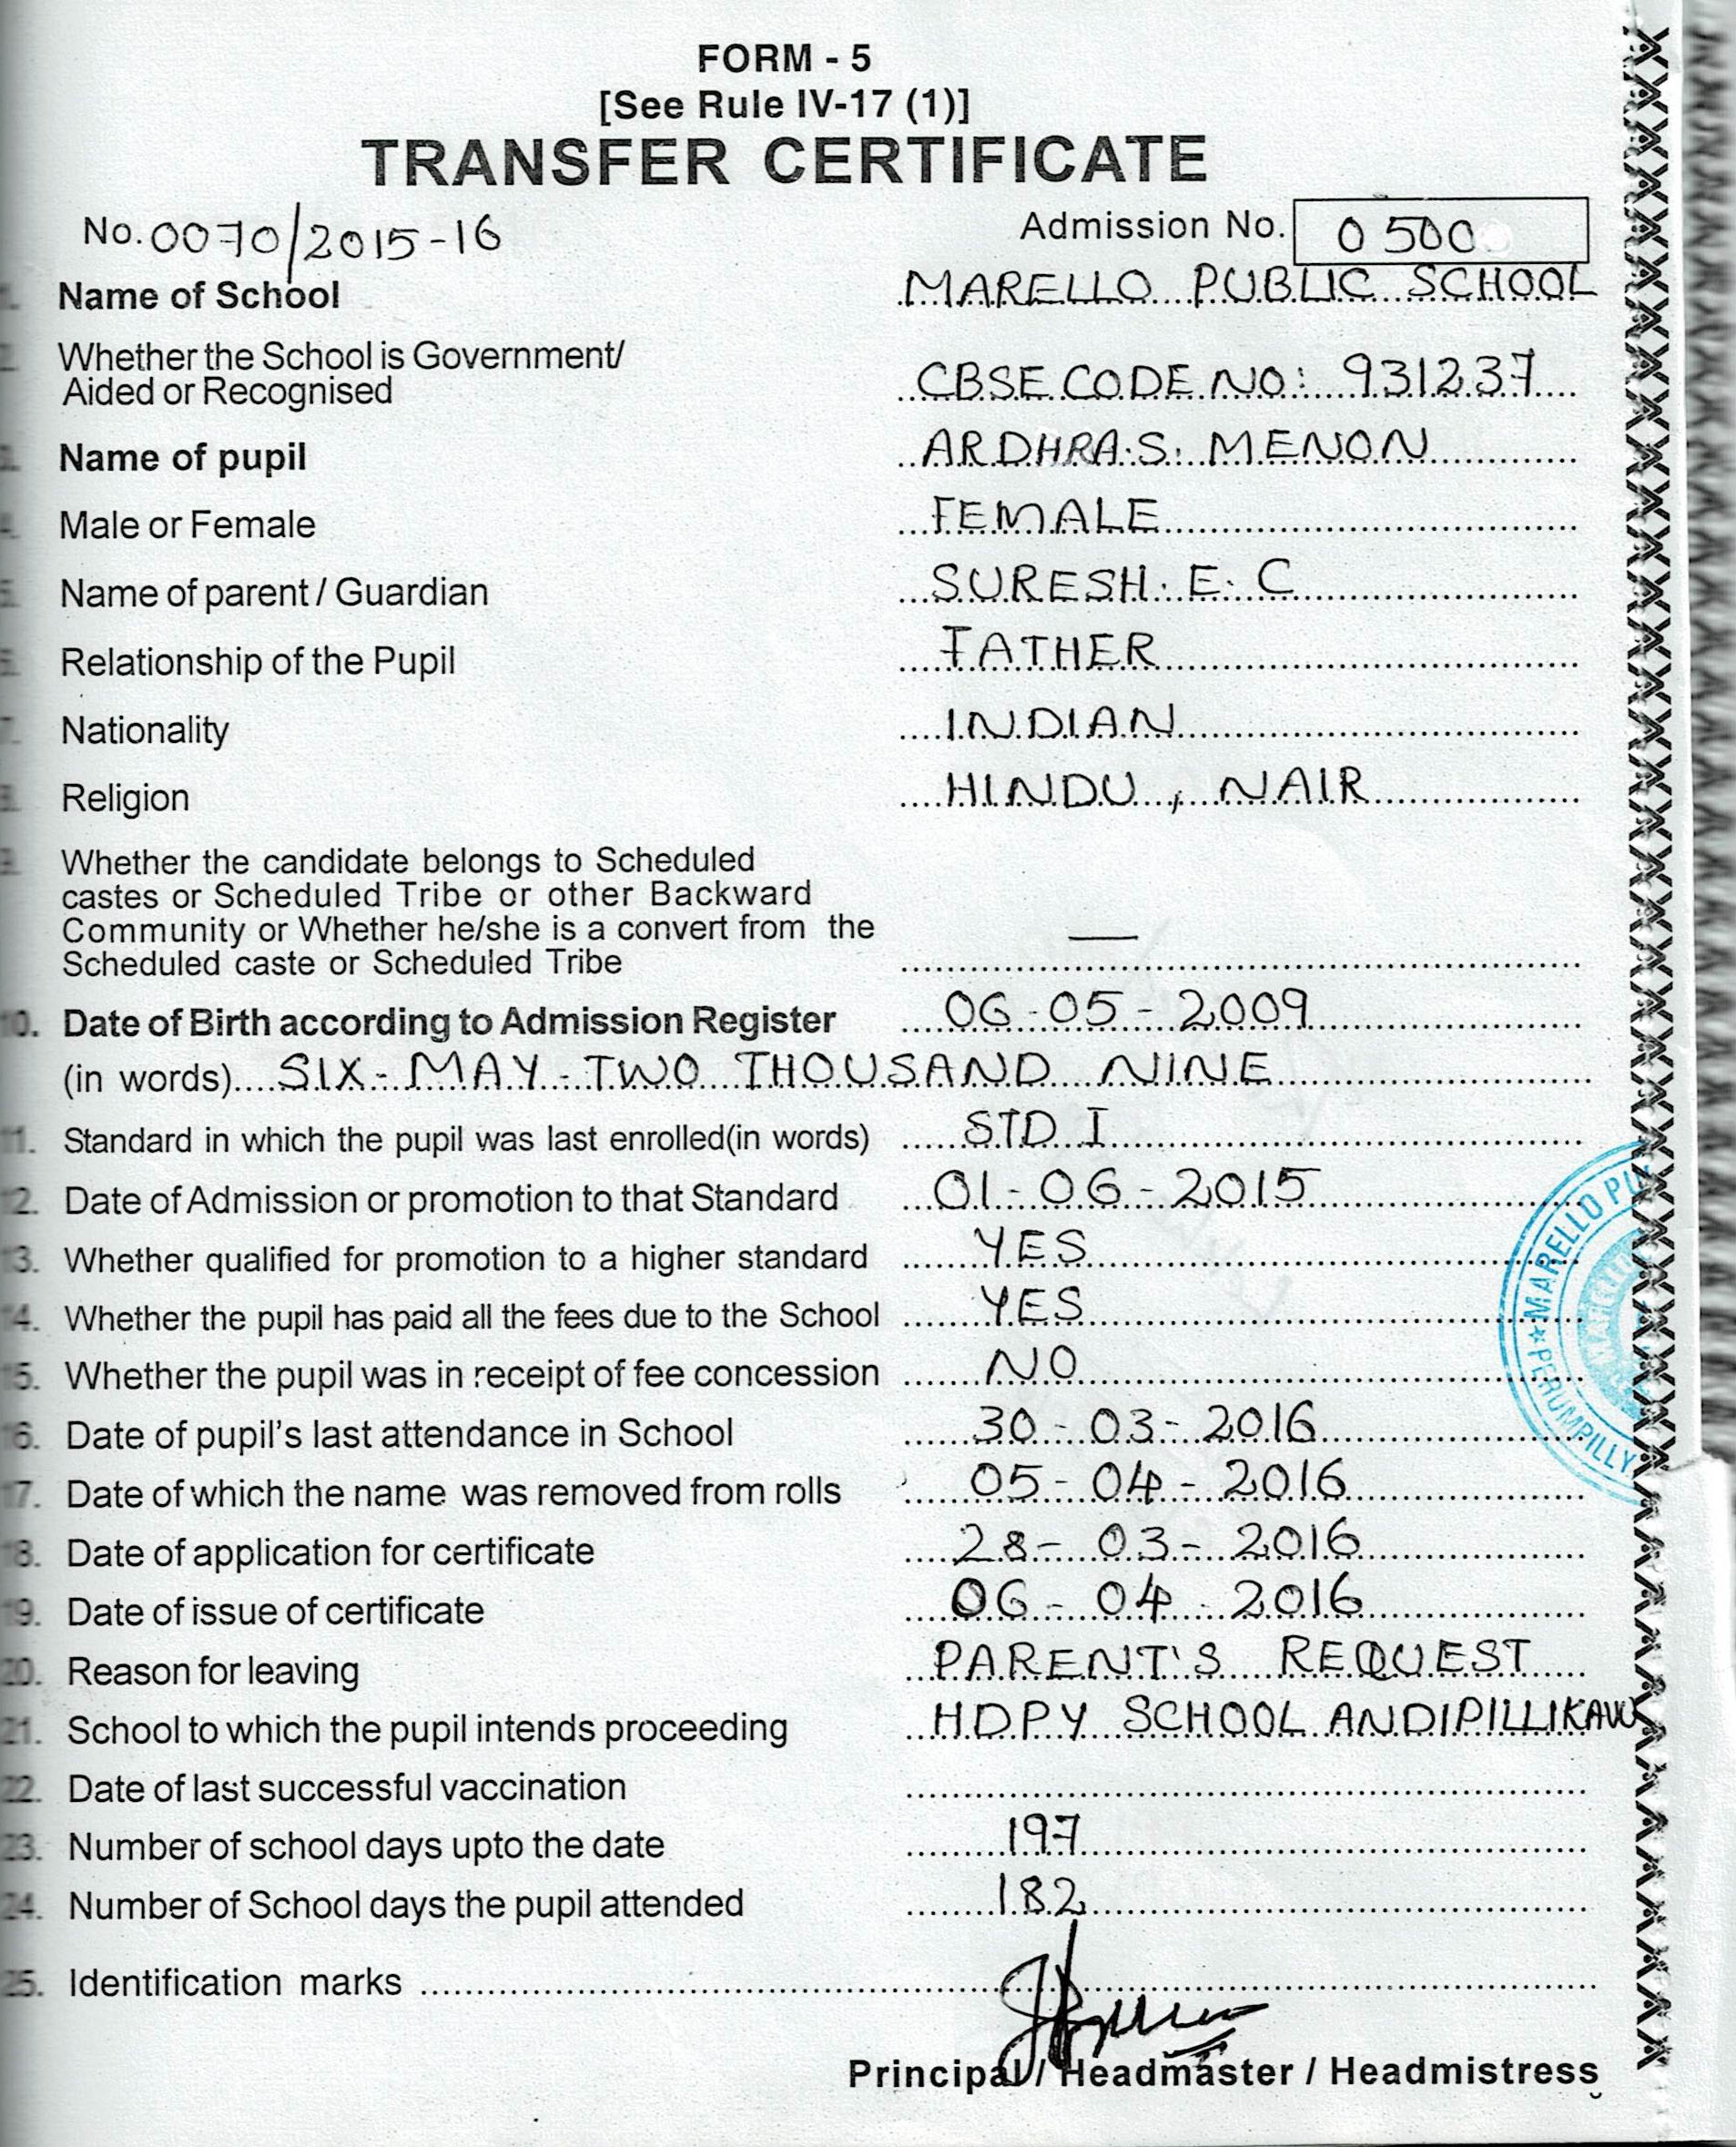 FORM - 5
[See Rule IV-17 (1)]
TRANSFER CERTIFICATE
No. 0070/2015-16 Admission No. 0 500
Name of School MARELLO PUBLIC SCHOOL
Whether the School is Government/
Aided or Recognised CBSE CODE NO: 931237
Name of pupil ARDHRA.S. MENON
Male or Female FEMALE
Name of parent / Guardian SURESH. E. C
Relationship of the Pupil FATHER
7. Nationality INDIAN
Religion HINDU, NAIR
Whether the candidate belongs to Scheduled
castes or Scheduled Tribe or other Backward
Community or Whether he/she is a convert from the
Scheduled caste or Scheduled Tribe —
10. Date of Birth according to Admission Register 06-05-2009
(in words) SIX-MAY-TWO THOUSAND NINE
11. Standard in which the pupil was last enrolled(in words) STD I
12. Date of Admission or promotion to that Standard 01-06-2015
13. Whether qualified for promotion to a higher standard YES
14. Whether the pupil has paid all the fees due to the School YES
15. Whether the pupil was in receipt of fee concession NO
16. Date of pupil's last attendance in School 30-03-2016
17. Date of which the name was removed from rolls 05-04-2016
18. Date of application for certificate 28-03-2016
19. Date of issue of certificate 06-04-2016
20. Reason for leaving PARENT'S REQUEST
21. School to which the pupil intends proceeding HDPY SCHOOL ANDIPILLIKAVU
22. Date of last successful vaccination
23. Number of school days upto the date 197
24. Number of School days the pupil attended 182
25. Identification marks
Principal / Headmaster / Headmistress
MARELLO PU
PERUMPILLY